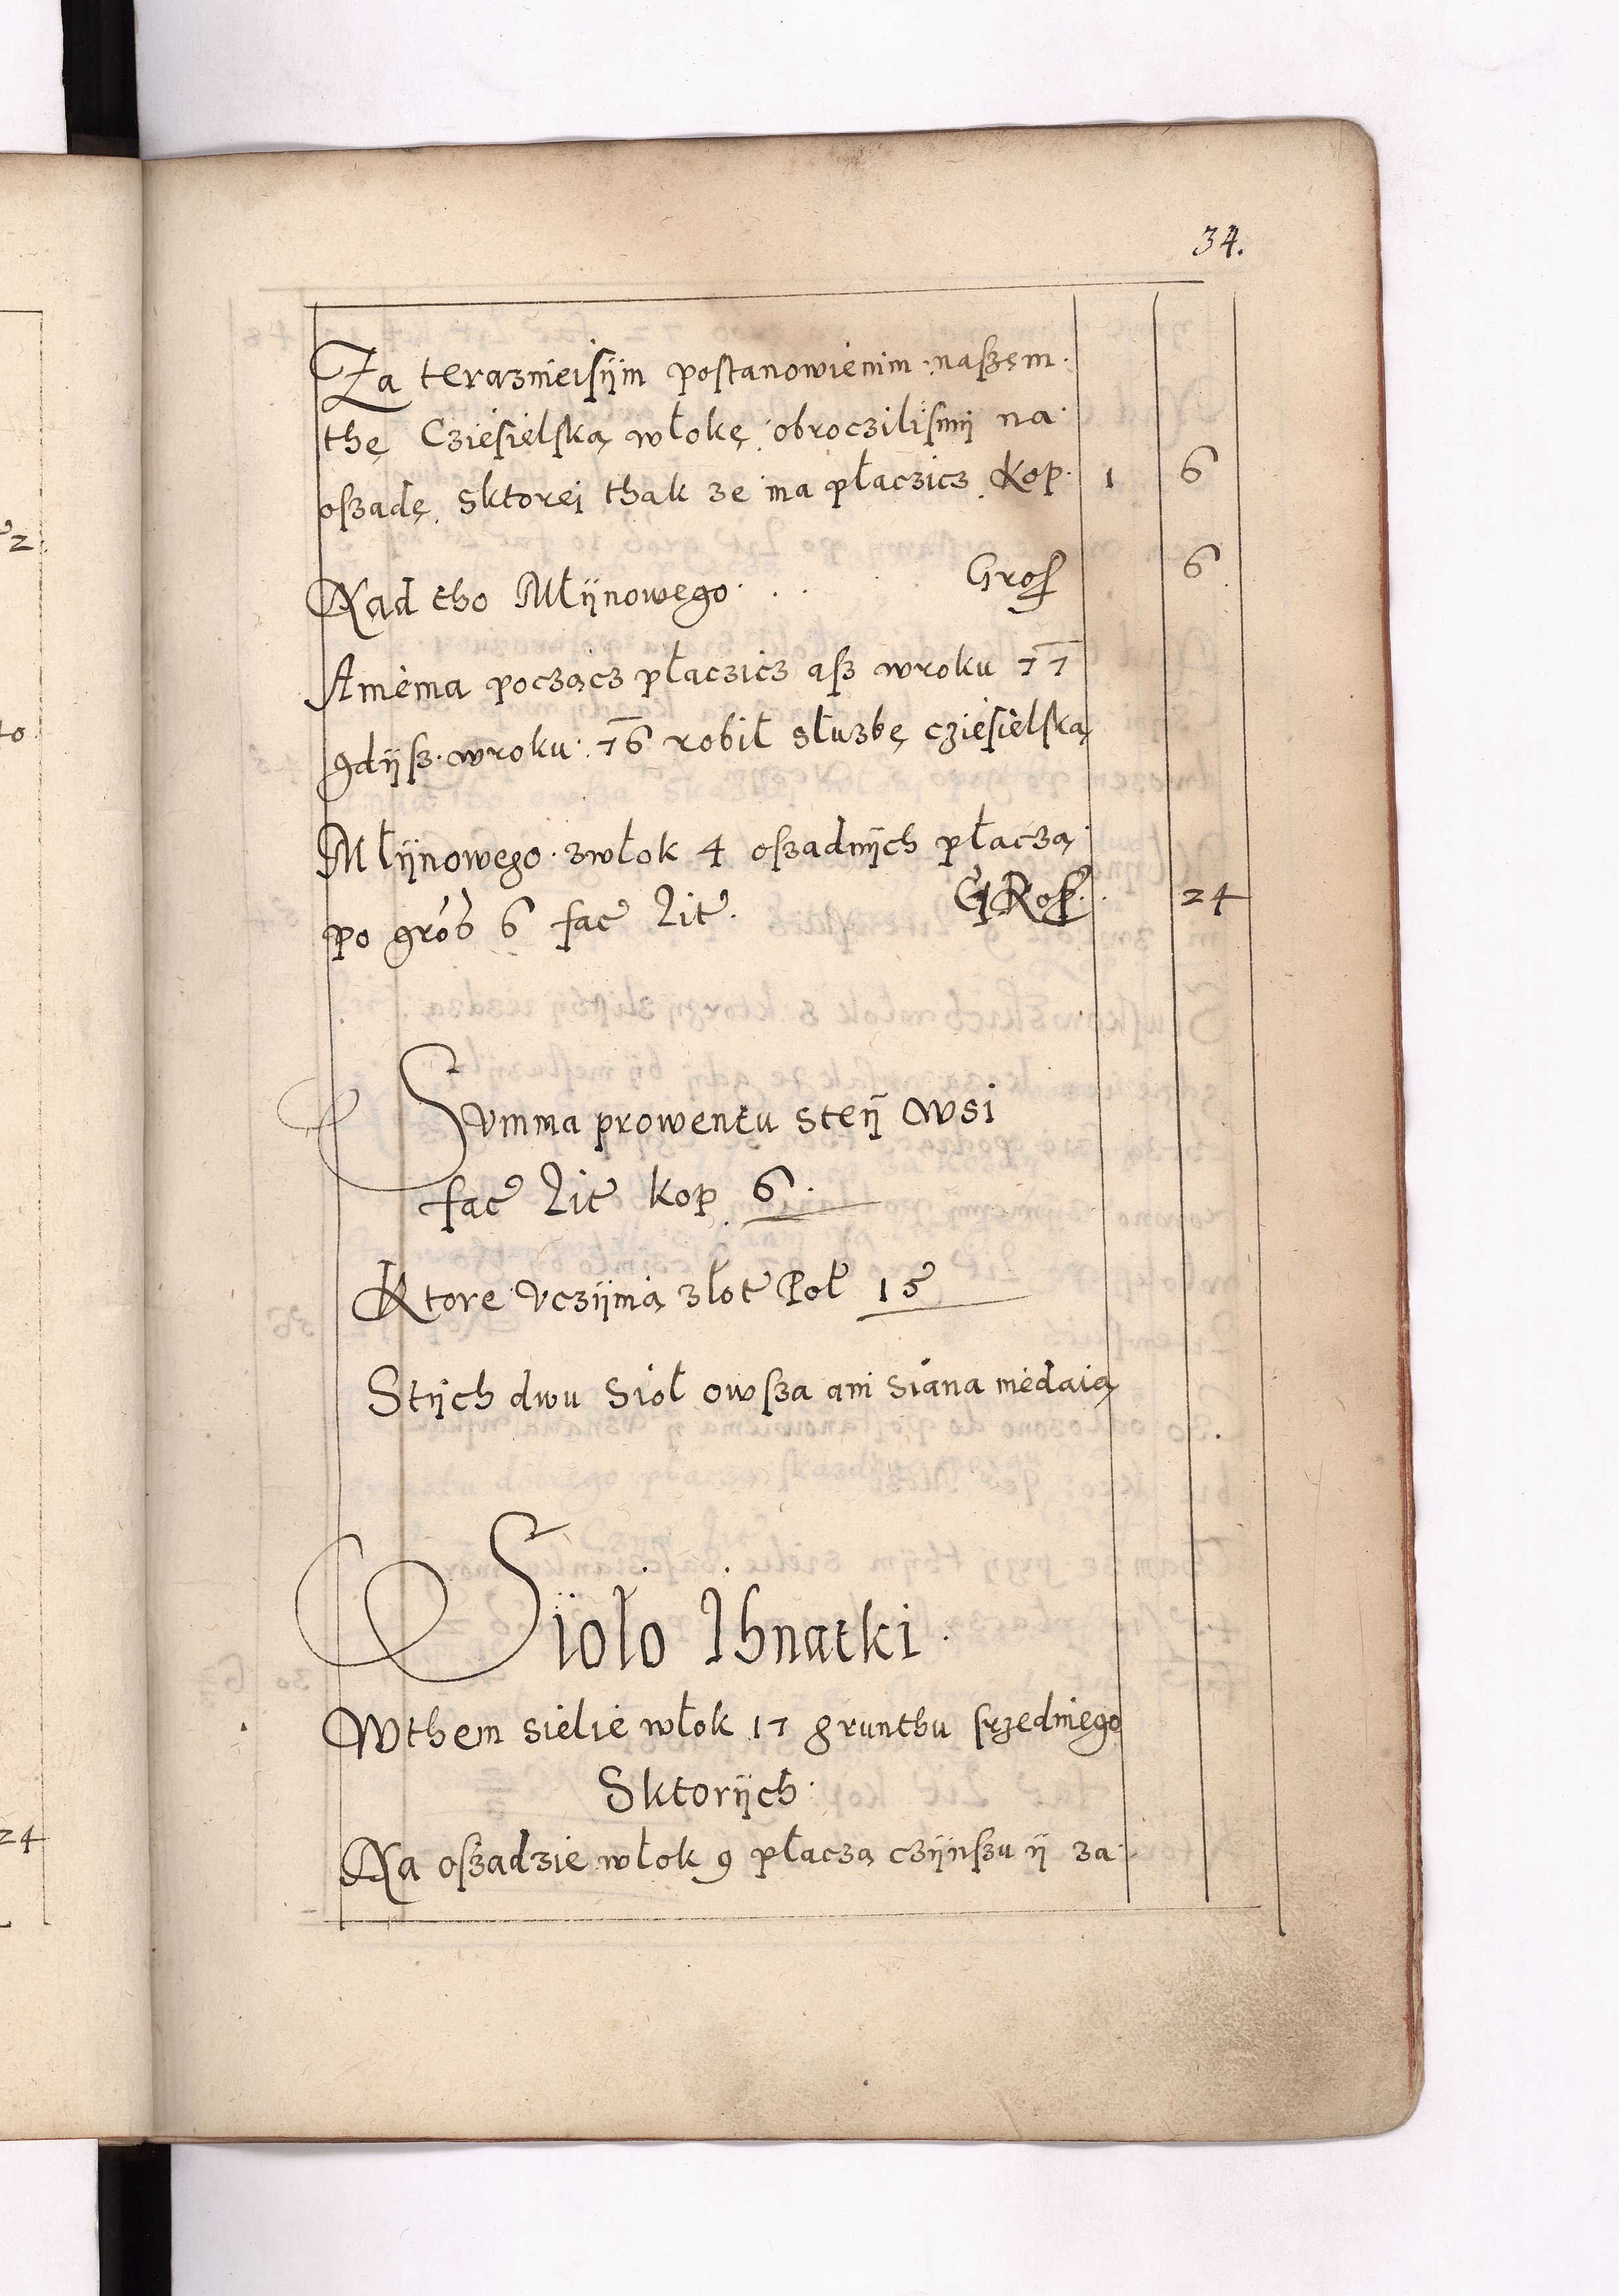 34.
Za terazmeisijm postanowienim naszem
thę Cziesielską włokę obrocziliśmij na
oszadę sktorej thak ze ma płaczicz Kop 1 6
Nad tho Młijnowego Gros 6
Amema począcz płaczicz asz wroku 77
gdijsz wroku 76 robił służbę cziesielską
Młijnowego zwłok 4 oszadnijch płaczą
po gros 6 fac Lit Gros 24
Summa prowentu steij wsi
fac Lit kop 6
Ktore vczijnią złot Pol 15
Stijch dwu Sioł owsza ani siana niedaią
Siioło Ihnatki
Wthem sielie włok 17 grunthu srzedniego
Sktorijch
Na oszadzie włok 9 płaczą czijnszu ij za
24